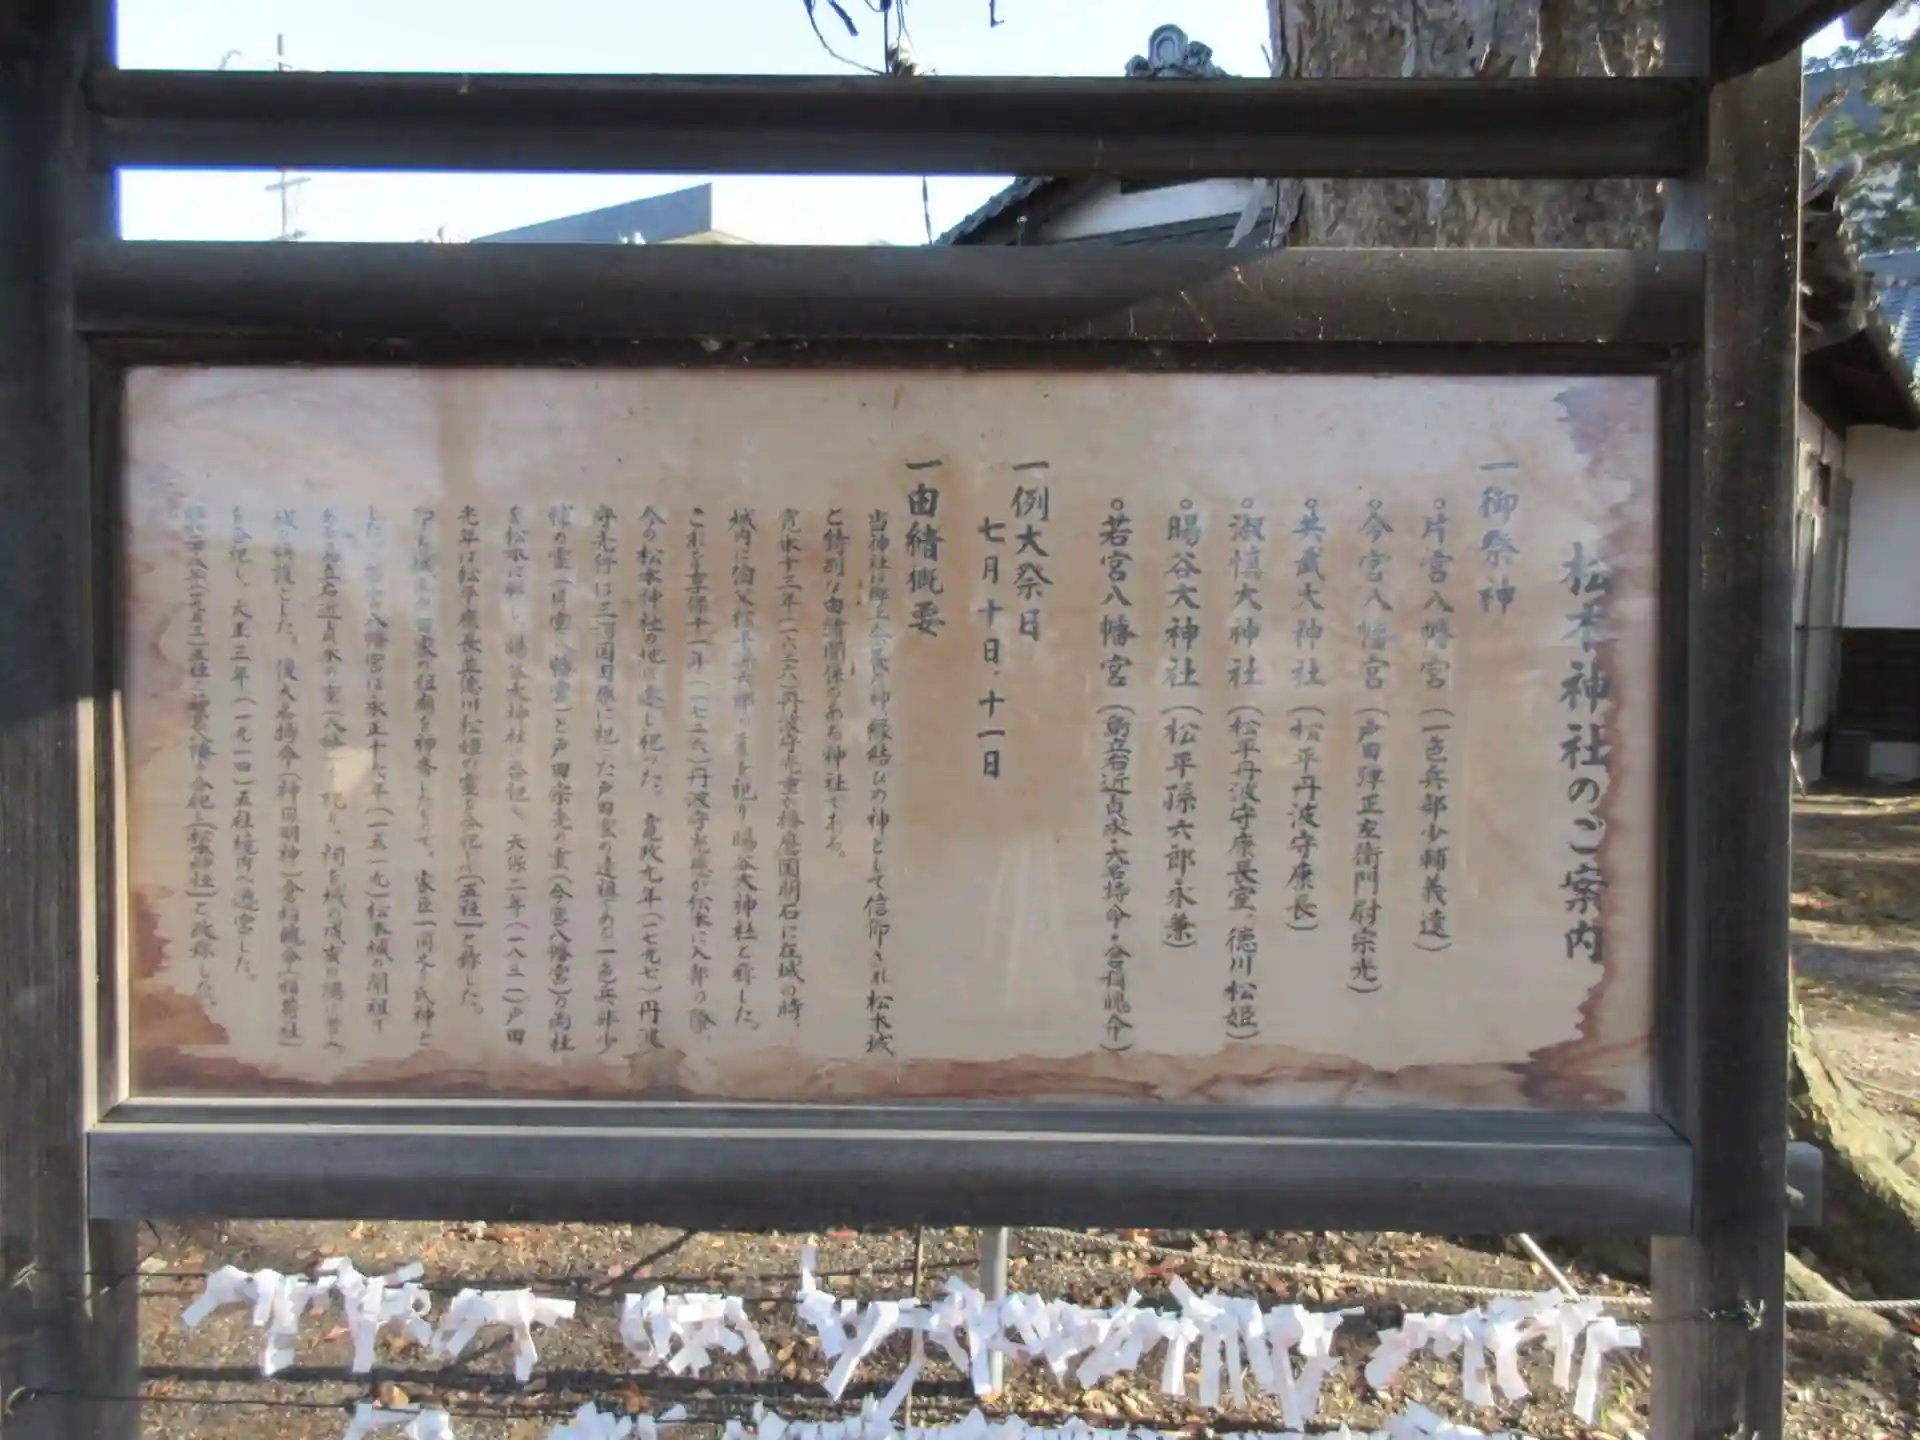 松本神社のご案内
一御祭神
○片宮八幡宮（一色兵部少輔義遠）
○今宮八幡宮（戸田弾正左衛門尉宗光）
○共武大神社（松平丹波守康長）
○淑慎大神社（松平丹波守康長室。徳川松姫）
○暘谷大神社（松平孫六郎永兼）
○若宮八幡宮（島立右近貞永・大名持命・倉稲魂命）
一例大祭日
七月十日、十一日
一由緒概要
当神社は 神縁結びの神として信仰され松本城
と特別な由緒関係のある神社である。
寛永十三年（一六三六）丹波守光重が播磨国明石に在城の時、
城内に伯父松平孫六郎の霊を祀り暘谷大神社と称した。
これを享保十一年（一七二六）丹波守光慈が松本に入部の際、
今の松本神社の地に遷し祀った。寛政九年（一七九七）丹波
守光行は三河国田原に祀った戸田家の遠祖である一色兵部少
輔の霊（片宮八幡宮）と戸田宗光の霊（今宮八幡宮）の両社
を松本に移し、暘谷大神社へ合祀し、天保二年（一八三一）戸田
光年は松平康長並徳川松姫の霊を合祀し（五社）と称した。
即ち城主戸田家の祖廟を神斎したもので、家臣一同之を氏神と
した。若宮八幡宮は永正十六年（一五一九）松本城の開祖で
ある島立右近貞永の霊（八幡 祀り、祠を城の
城の鎮護とした。後大名持命（神田明神）倉稲魂命（稲荷社）
を合祀し、大正三年（一九一四）五社境内へ遷宮した。
昭和二八年（一九五三）五社 合祀し（松本神社）と改称した。